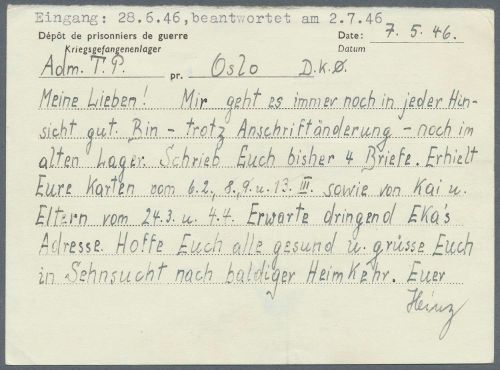 Eingang: 28.6.46, beantwortet am 2.7.46
Dépôt de prisonniers de guerre Date: 7. 5. 46.
Kriegsgefangenenlager Datum
Adm. T.P. pr. Oslo D.K.Ø.
Meine Lieben! Mir geht es immer noch in jeder Hin-
sicht gut. Bin - trotz Anschriftänderung - noch im
alten Lager. Schrieb Euch bisher 4 Briefe. Erhielt
Eure Karten vom 6.2., 8., 9. u. 13. III. sowie von Kai u.
Eltern vom 24.3. u. 4.4. Erwarte dringend EKa's
Adresse. Hoffe Euch alle gesund u. grüsse Euch
in Sehnsucht nach baldiger Heimkehr. Euer
Heinz